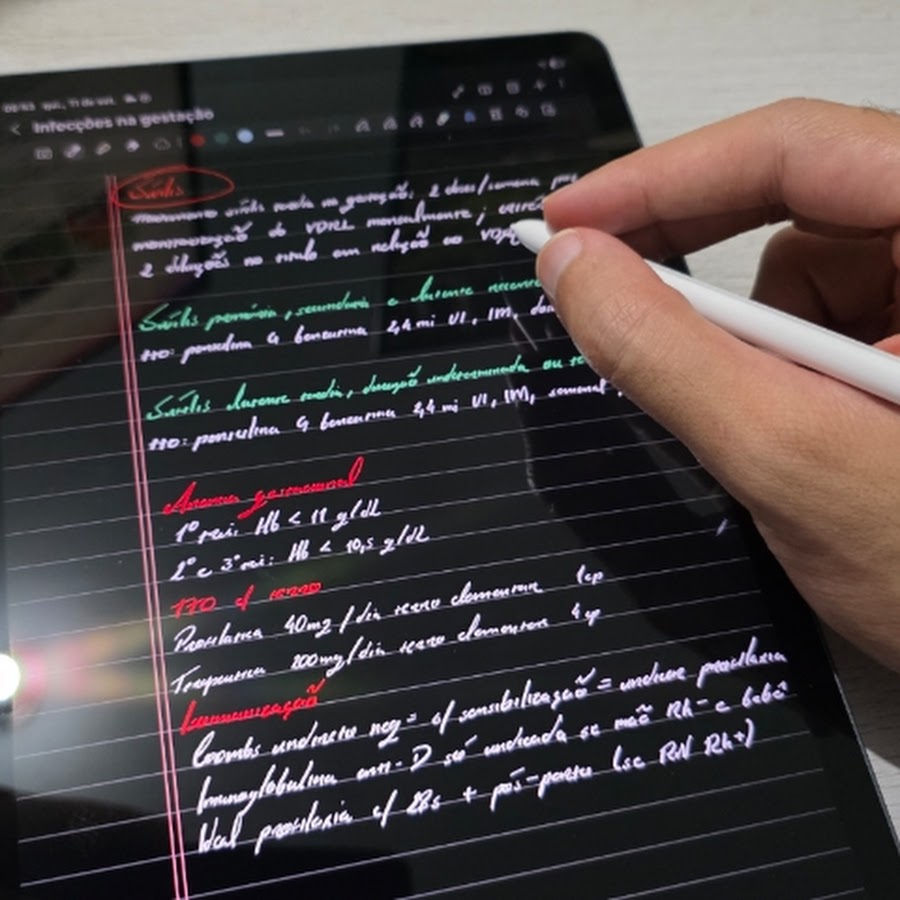 Infecções na gestação
Sífilis
sífilis na gestação: 2 doses/semana
do VDRL mensalmente;
2 diluições no título em relação ao
Sífilis primária, secundária e latente recente
TTO: penicilina G benzatina 2,4 mi UI, IM,
Sífilis latente tardia, duração indeterminada ou
TTO: penicilina G benzatina 2,4 mi UI, IM, semanal
Anemia gestacional
1º tri: Hb < 11 g/dL
2º e 3º tri: Hb < 10,5 g/dL
TTO c/ ferro
Profilaxia 40mg/dia ferro elementar 1cp
Terapêutica 200mg/dia ferro elementar 4cp
Coombs indireto neg = c/ sensibilização = indicar profilaxia
Imunoglobulina anti-D só indicada se mãe Rh- e bebê
Ideal profilaxia c/ 28s + pós-parto (se RN Rh+)